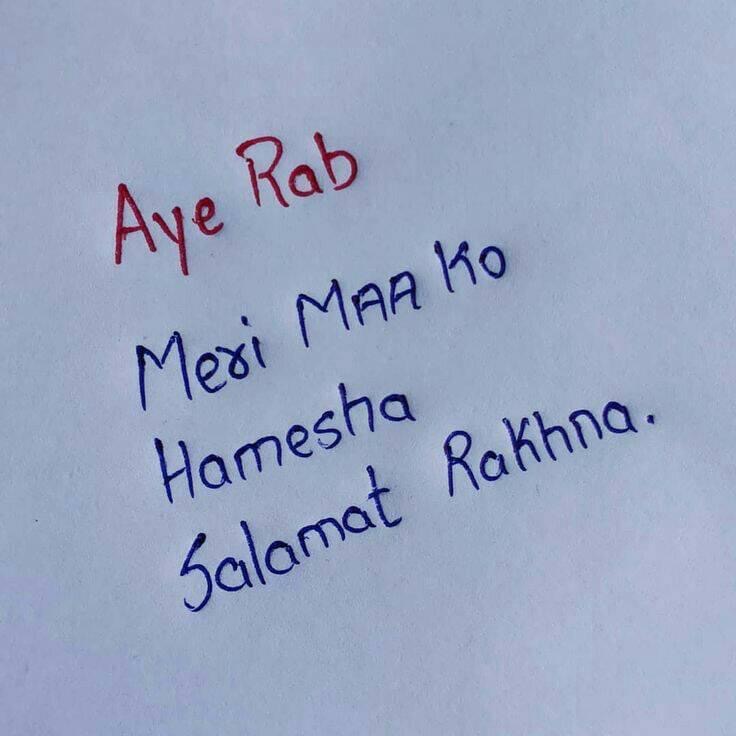 Aye Rab
Meri MAA Ko
Hamesha
Salamat Rakhna.